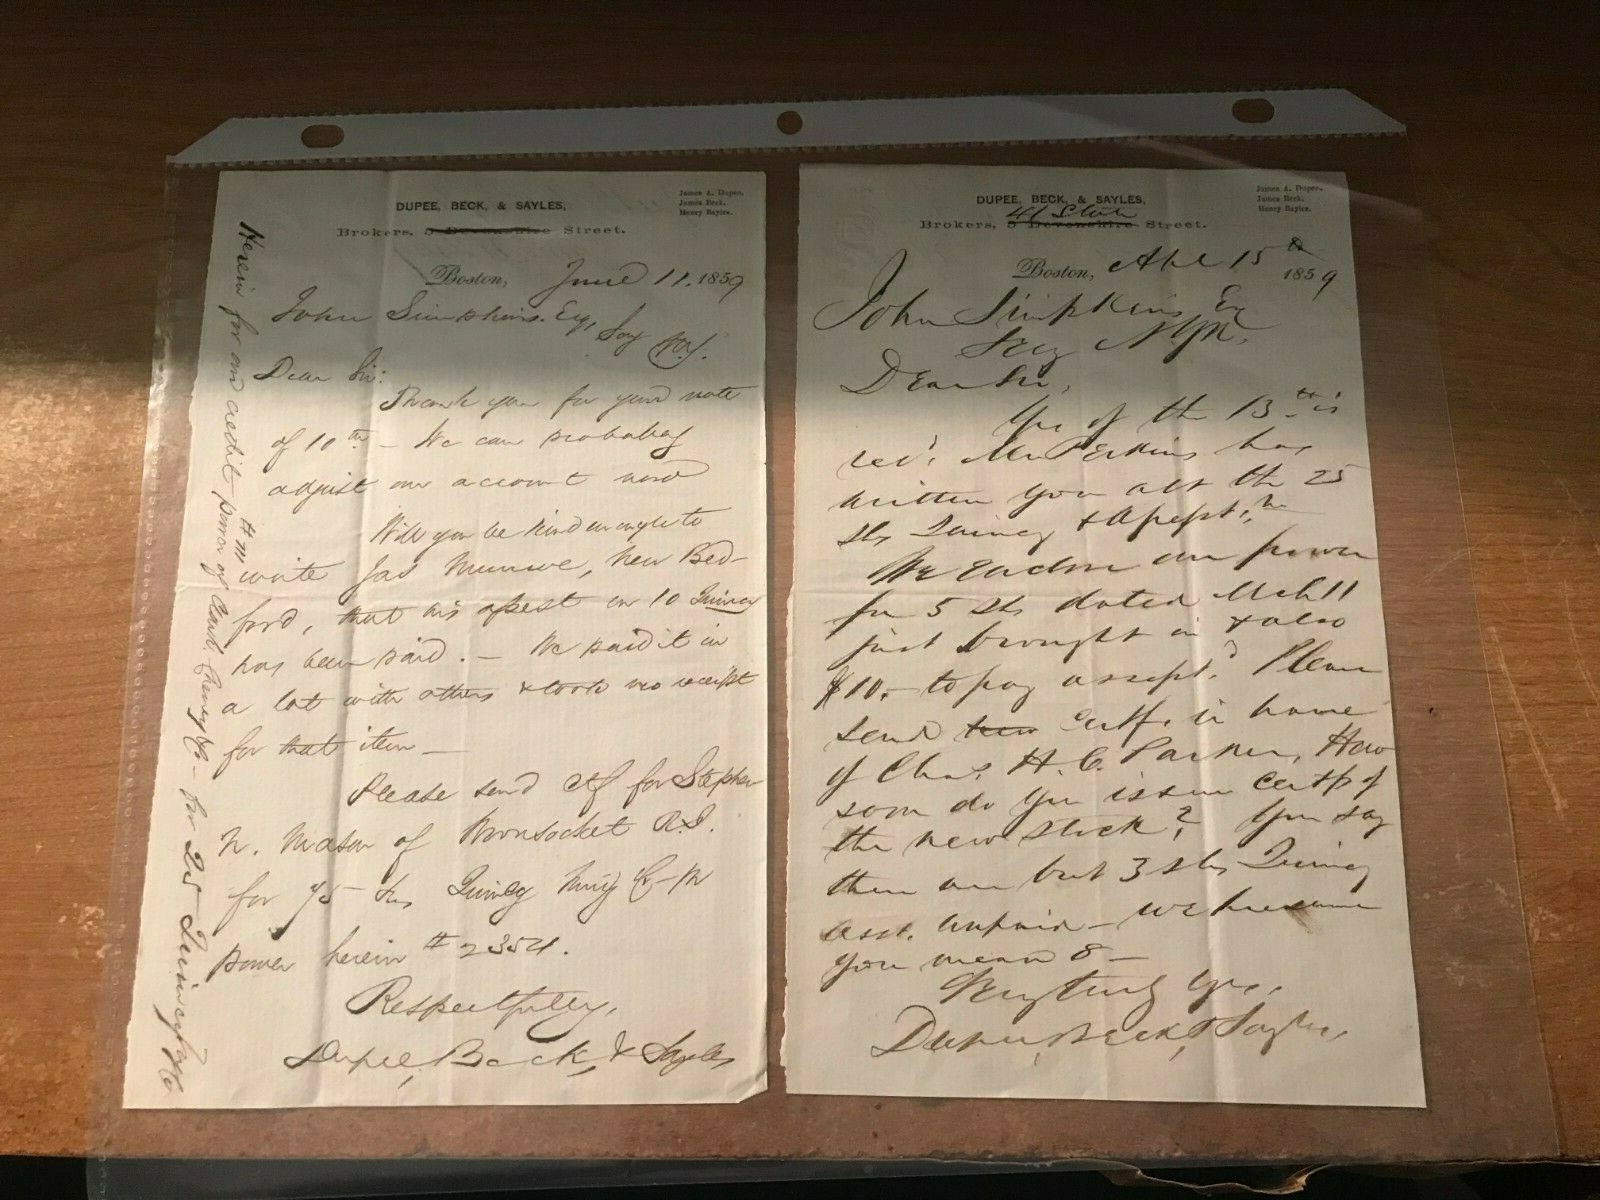 DUPEE, BECK, & SAYLES,
James A. Dupee.
James Beck.
Henry Sayles.
Brokers, 5 Devonshire Street.
Boston, June 11, 1859
John Simpkins. Esq,
Dear Sir:
Thank you for your note
of 10th – We can probably
adjust our account now
Will you be kind enough to
write Jas Munroe, New Bed-
ford, that his assest on 10 Quincy
has been paid. – We paid it in
a lot with others & took no receipt
for that item –
Please send ctf for Stephen
N. Mason of Woonsocket R.I.
for 75 – shs Quincy Ming Co –
power herein # 2354.
Respectfully,
Dupee, Beck, & Sayles
Herein for our credit power of Cheney & Co – for 25 Quincy
DUPEE, BECK, & SAYLES,
James A. Dupee.
James Beck.
Henry Sayles.
41 State
Brokers, 5 Devonshire Street.
Boston, 15th 1859
John Simpkins Esq
Dear Sir,
Yrs of the 13th is
rec'd. Mr Perkins has
written you abt the 25
shs Quincy &
We enclose our power
for 5 shs dated Mch 11
just brought in & also
$10. – to pay assept. Please
send them certf. in name
of Chas. H. C. Parker, How
soon do you issue certfs of
the new stock? You say
there are but 3 shs Quincy
asst. unpaid – we presume
you mean 8 –
Very truly yrs,
Dupee, Beck, & Sayles,